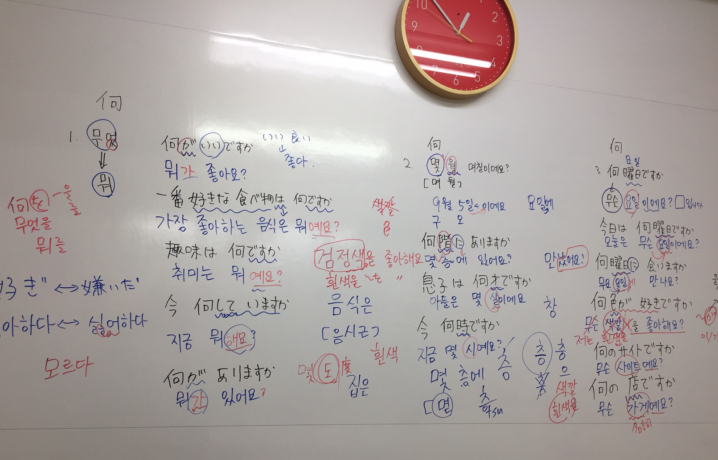 何
1. 무엇
뭐
何を
을
를
무엇을
뭐를
好き" ↔ 嫌いだ"
아하다 ↔ 싫어하다
모르다
何がいいですか
いい 良い
좋다.
뭐가 좋아요?
一番 好きな 食べ物は 何ですか
가장 좋아하는 음식은 뭐예요?
趣味は 何ですか
취미는 뭐예요?
今 何して いますか
지금 뭐해요?
何が ありますか
뭐가 있어요?
색깔
검정색을 좋아해요
흰색을
음식은
[음시근]
몇 도 度
흰색
집은
何
2. 몇 월 며칠이에요?
9월 5일
구 오
요일에
何階に ありますか
몇 층에 있어요?
만났어요?
息子は 何才ですか
아들은 몇 살이에요
창
今 何時ですか
지금 몇 시예요?
몇 층에
층
층
은
색깔
흰색을
[면
何
요일
3. 何曜日ですか
무슨 요일이에요?
今日は 何曜日ですか
오늘은 무슨 요일이에요?
何曜日に 会いますか
무슨 요일에 만나요?
何色が 好きですか
무슨 색깔을 좋아해요?
저는 흰색을
何のサイトですか
무슨 사이트예요?
何の 店ですか
무슨 가게예요?
10
11
12
1
2
3
4
5
6
7